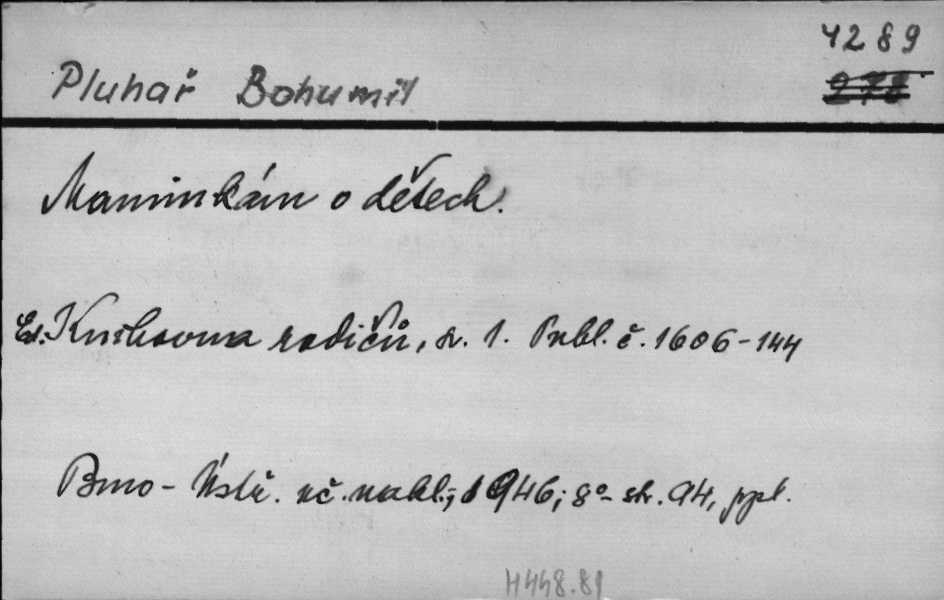 4289
Pluhař Bohumil
Maminkám o dětech.
Ed. Knihovna rodičů, sv. 1. Publ. č. 1606-144
Brno - Ústř. uč. nakl.; 1946; 8°- str. 94, ppl.
H448.81